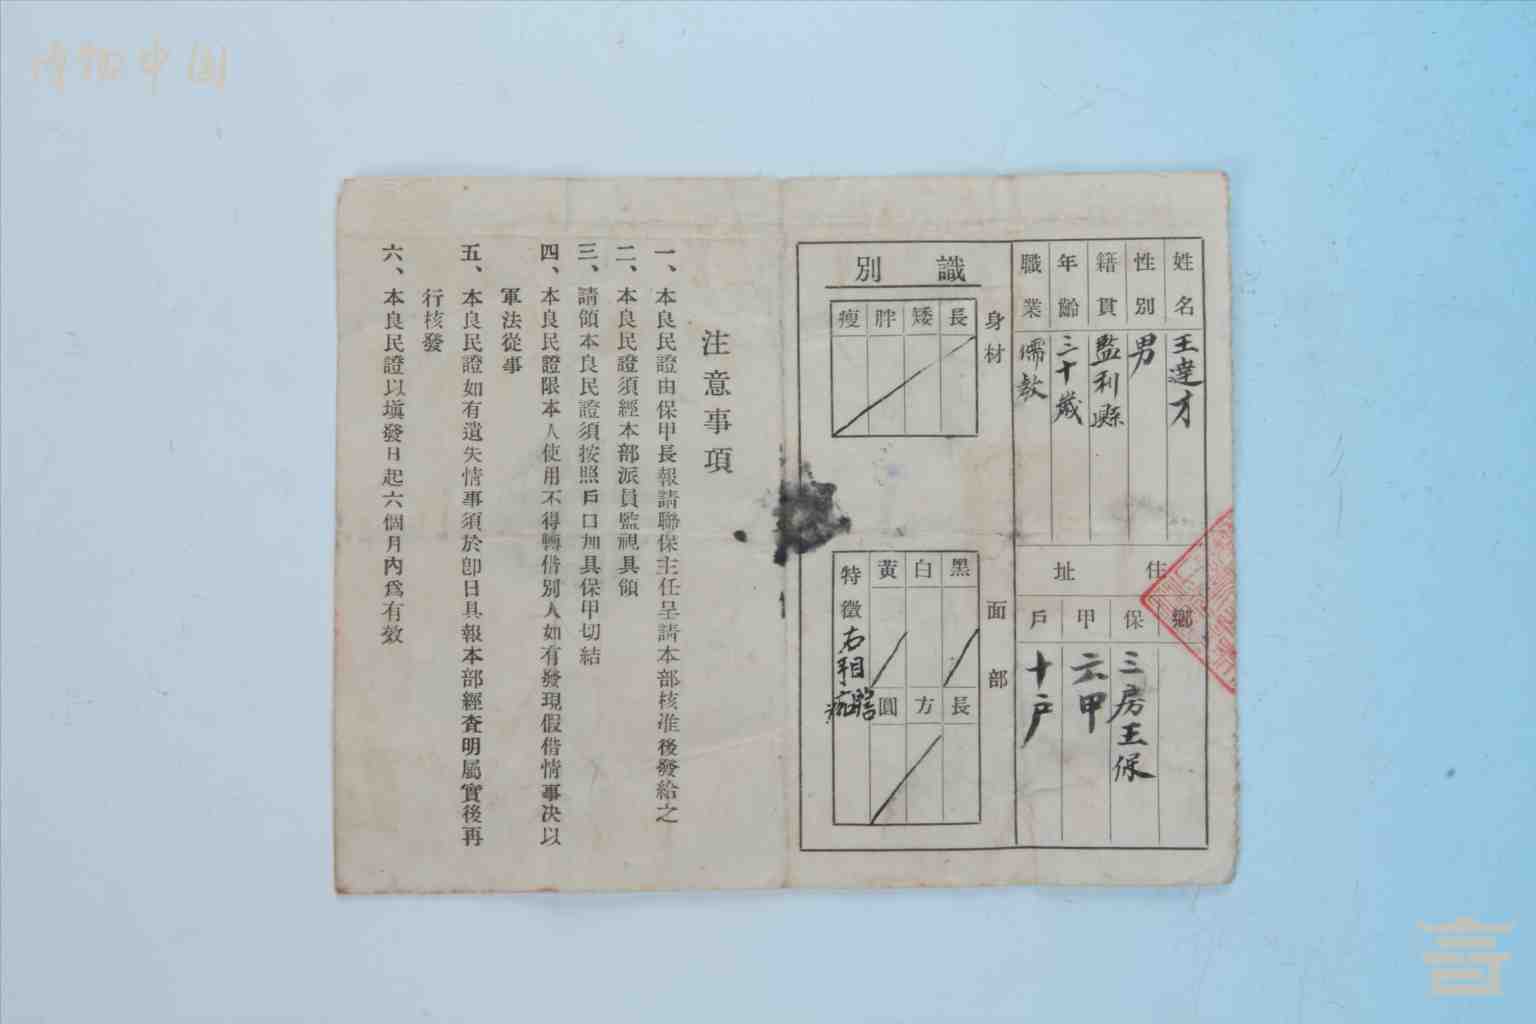 姓名 王達才
性別 男
籍貫 監利縣
年齡 三十歲
職業 儒教
住址
鄉
保 三房王保
甲 六甲
戶 十戶
識別
身材
長 矮 胖 瘦
面部
黑 白 黃
長 方 圓
特徵 右
注意事項
一、本良民證由保甲長報請聯保主任呈請本部核准後發給之
二、本良民證須經本部派員監視具領
三、請領本良民證須按照戶口加具保甲切結
四、本良民證限本人使用不得轉借別人如有發現假借情事决以
軍法從事
五、本良民證如有遺失情事須於卽日具報本部經查明屬實後再
行核發
六、本良民證以塡發日起六個月內爲有效
博物中国